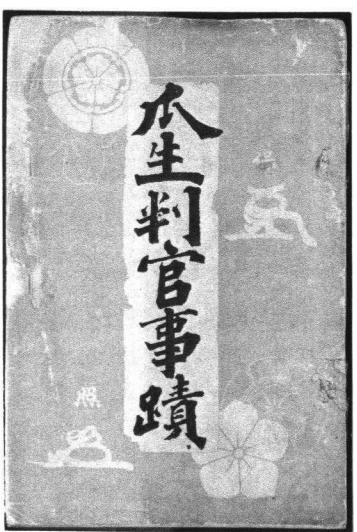 瓜生判官事蹟
照